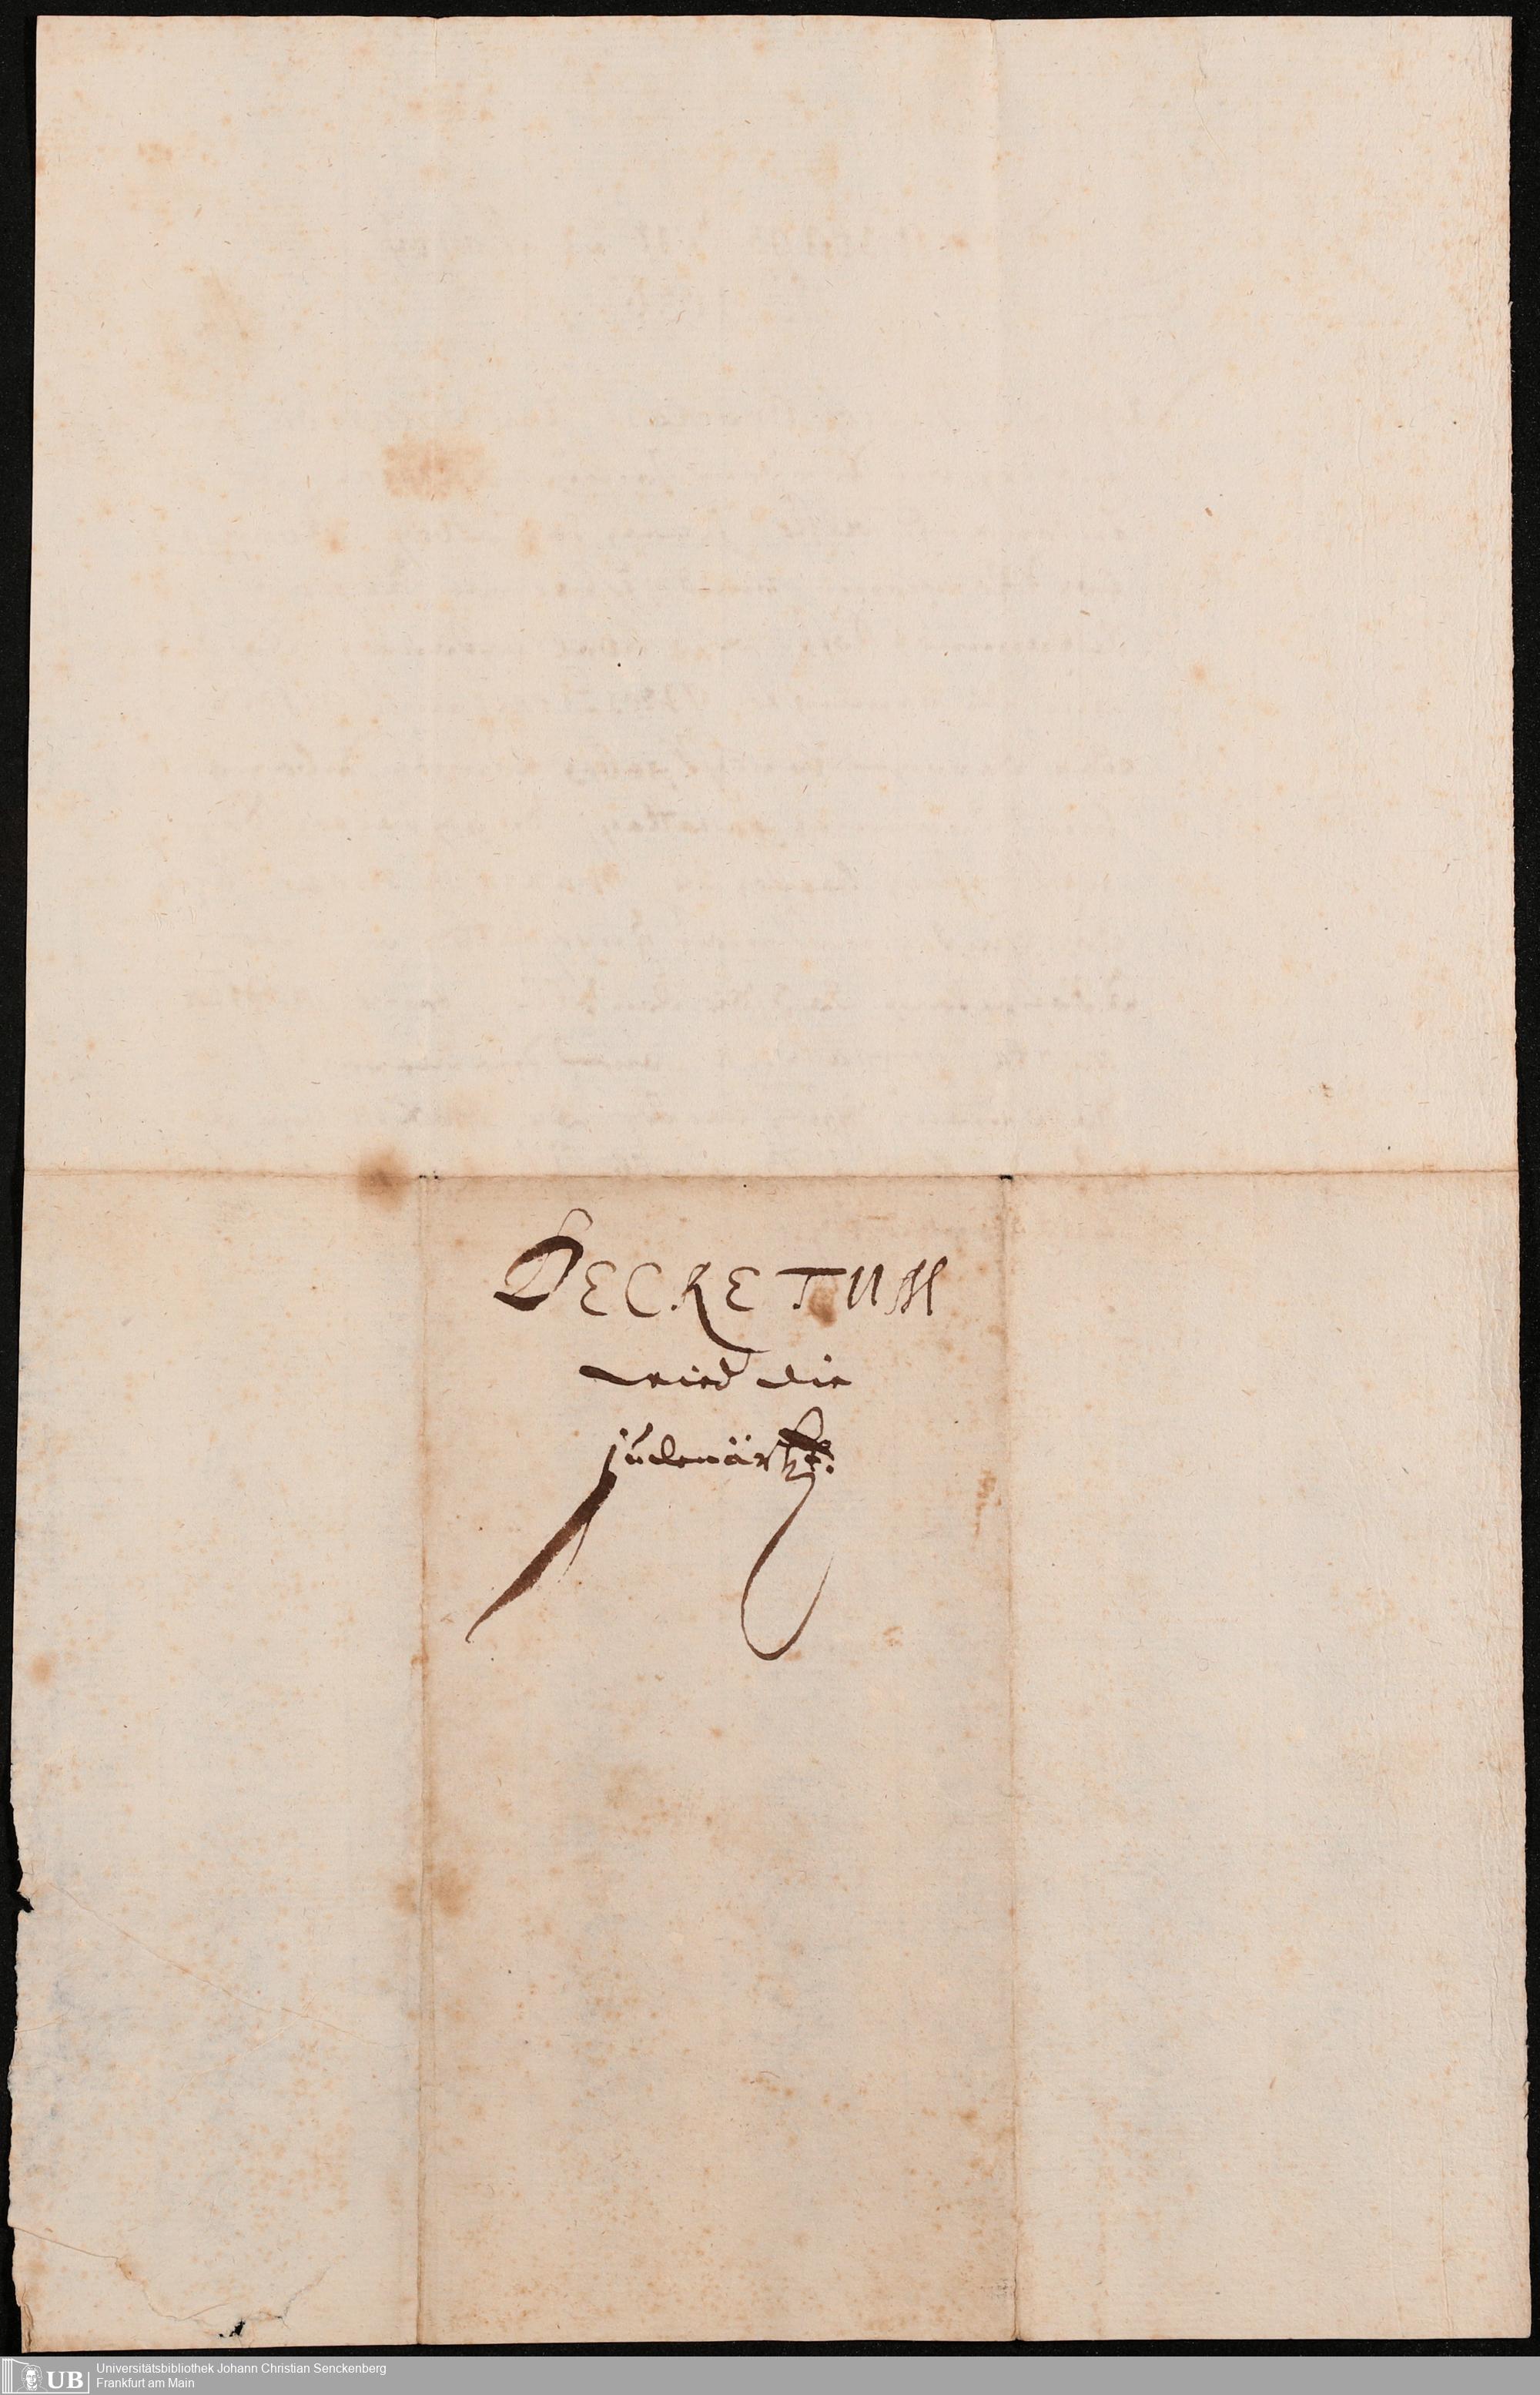 DECRETUM
wied die
judenärtzt:
Universitätsbibliothek Johann Christian Senckenberg
Frankfurt am Main
UB